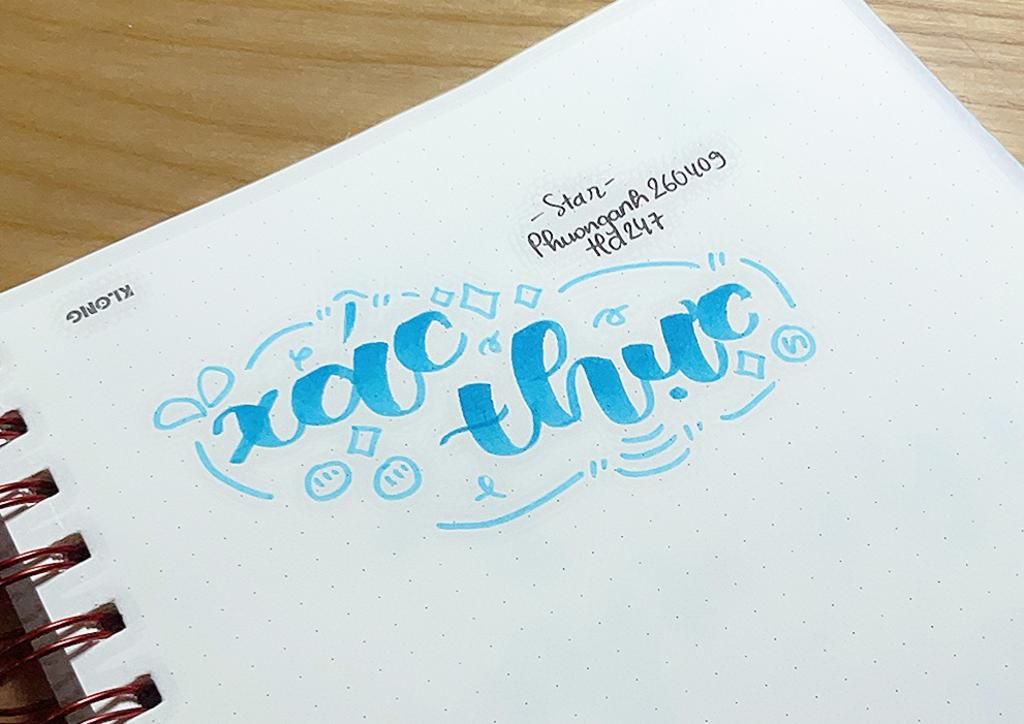 - Star -
Phuonganh260409
Hd247
xác
thực
KLONG